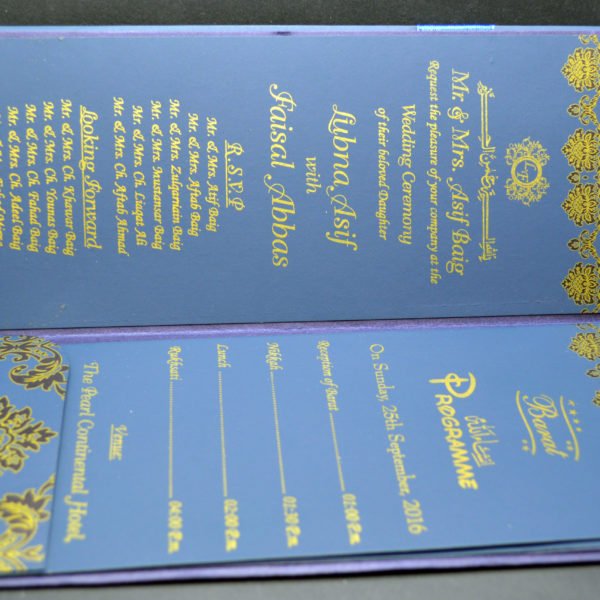 Mr. & Mrs. Asif Baig
Request the pleasure of your company at the
Wedding Ceremony
of their beloved Daughter
Lubna Asif
with
Faisal Abbas
R.S.V.P
Mr. & Mrs. Asif Baig
Mr. & Mrs. Aftab Baig
Mr. & Mrs. Zulqarnain Baig
Mr. & Mrs. Anustansar Baig
Mr. & Mrs. Ch. Liaqat Ali
Mr. & Mrs. Ch. Aftab Ahmad
Looking forward
Mr. & Mrs. Ch. Khawar Baig
Mr. & Mrs. Ch. Younas Baig
Mr. & Mrs. Ch. Fahad Baig
Mr. & Mrs. Ch. Adeel Baig
Barat
PROGRAMME
On Sunday, 25th September, 2016
Reception of Barat 01:00 P.m.
Nikkah 01:30 P.m.
Lunch 02:00 P.m.
Rukhsati 04:00 P.m.
Venue:
The Pearl Continental Hotel,